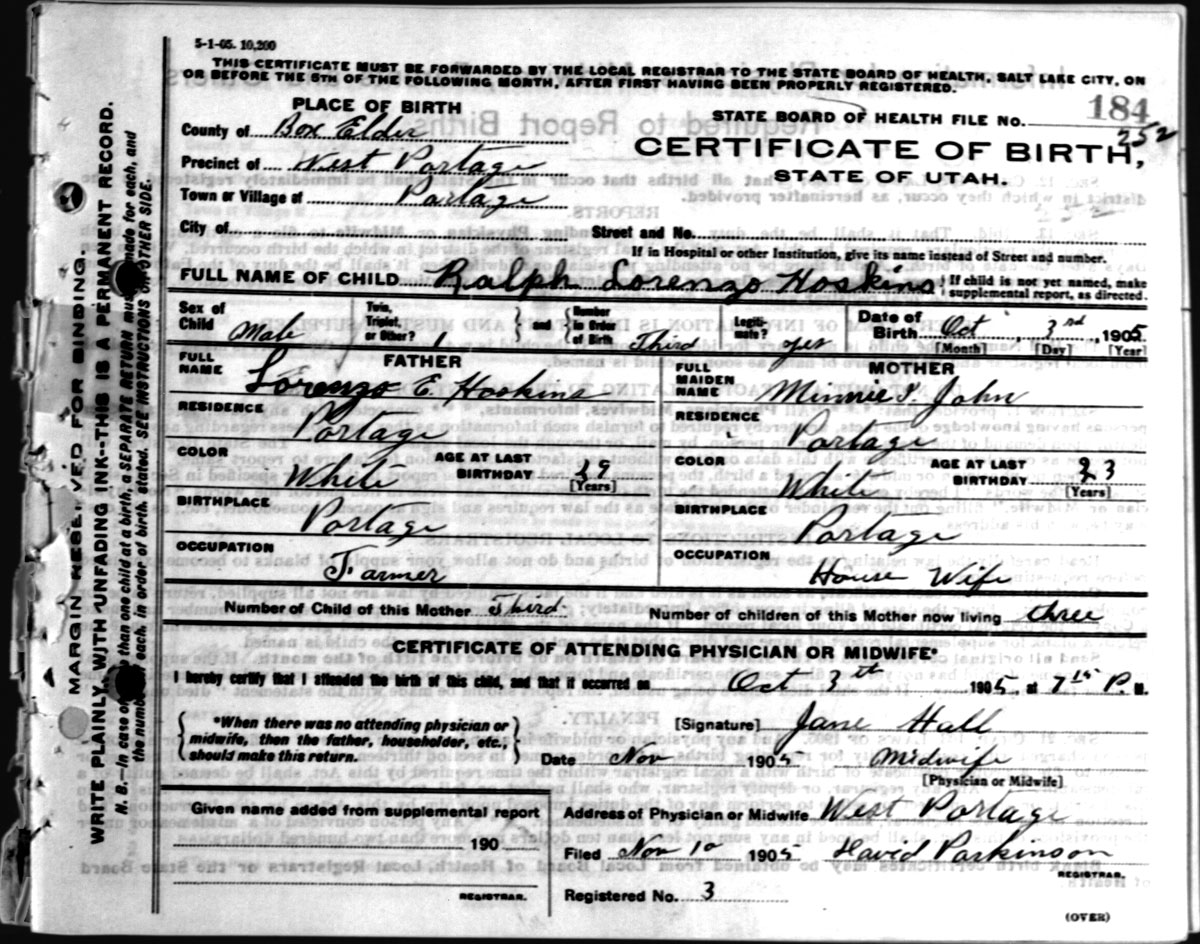 5-1-05. 10,200
THIS CERTIFICATE MUST BE FORWARDED BY THE LOCAL REGISTRAR TO THE STATE BOARD OF HEALTH, SALT LAKE CITY, ON
OR BEFORE THE 5TH OF THE FOLLOWING MONTH, AFTER FIRST HAVING BEEN PROPERLY REGISTERED.
PLACE OF BIRTH
STATE BOARD OF HEALTH FILE No. 184
252
County of Box Elder
CERTIFICATE OF BIRTH,
Precinct of West Portage
STATE OF UTAH.
Town or Village of Portage
City of Street and No.
If in Hospital or other Institution, give its name instead of Street and number.
FULL NAME OF CHILD Ralph Lorenzo Hoskins
If child is not yet named, make
supplemental report, as directed.
Sex of Child Male
Twin, Triplet, or Other? 1
and Number in Order of Birth Third
Legitimate? yes
Date of Birth Oct 3rd, 1905
[Month] [Day] [Year]
FATHER
FULL NAME Lorenzo E. Hoskins
RESIDENCE Portage
COLOR White
AGE AT LAST BIRTHDAY 29
[Years]
BIRTHPLACE Portage
OCCUPATION Farmer
MOTHER
FULL MAIDEN NAME Minnie John
RESIDENCE Portage
COLOR White
AGE AT LAST BIRTHDAY 23
[Years]
BIRTHPLACE Portage
OCCUPATION House Wife
Number of Child of this Mother Third
Number of children of this Mother now living three
CERTIFICATE OF ATTENDING PHYSICIAN OR MIDWIFE*
I hereby certify that I attended the birth of this child, and that it occurred on Oct 3th 1905, at 7 15 P. M.
*When there was no attending physician or
midwife, then the father, householder, etc.,
should make this return.
[Signature] Jane Hall
Date Nov 1905 Midwife
[Physician or Midwife]
Given name added from supplemental report
190
REGISTRAR.
Address of Physician or Midwife West Portage
Filed Nov 10 1905 David Parkinson
REGISTRAR.
Registered No. 3
(OVER)
MARGIN RESERVED FOR BINDING.
WRITE PLAINLY, WITH UNFADING INK--THIS IS A PERMANENT RECORD.
N. B.--In case of more than one child at a birth, a SEPARATE RETURN must be made for each, and
the number of each, in order of birth, stated. SEE INSTRUCTIONS ON OTHER SIDE.